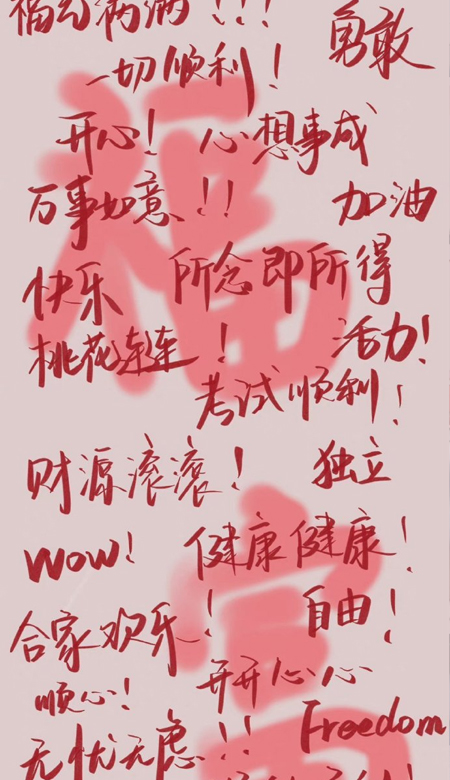 福气满满!!!
勇敢
一切顺利!
开心!
心想事成
万事如意!!
加油
快乐
所念即所得
桃花涟涟!
活力!
考试顺利!
财源滚滚!
独立
Wow!
健康健康!
合家欢乐!
自由!
顺心!
开开心心
无忧无虑!!
Freedom
福
富